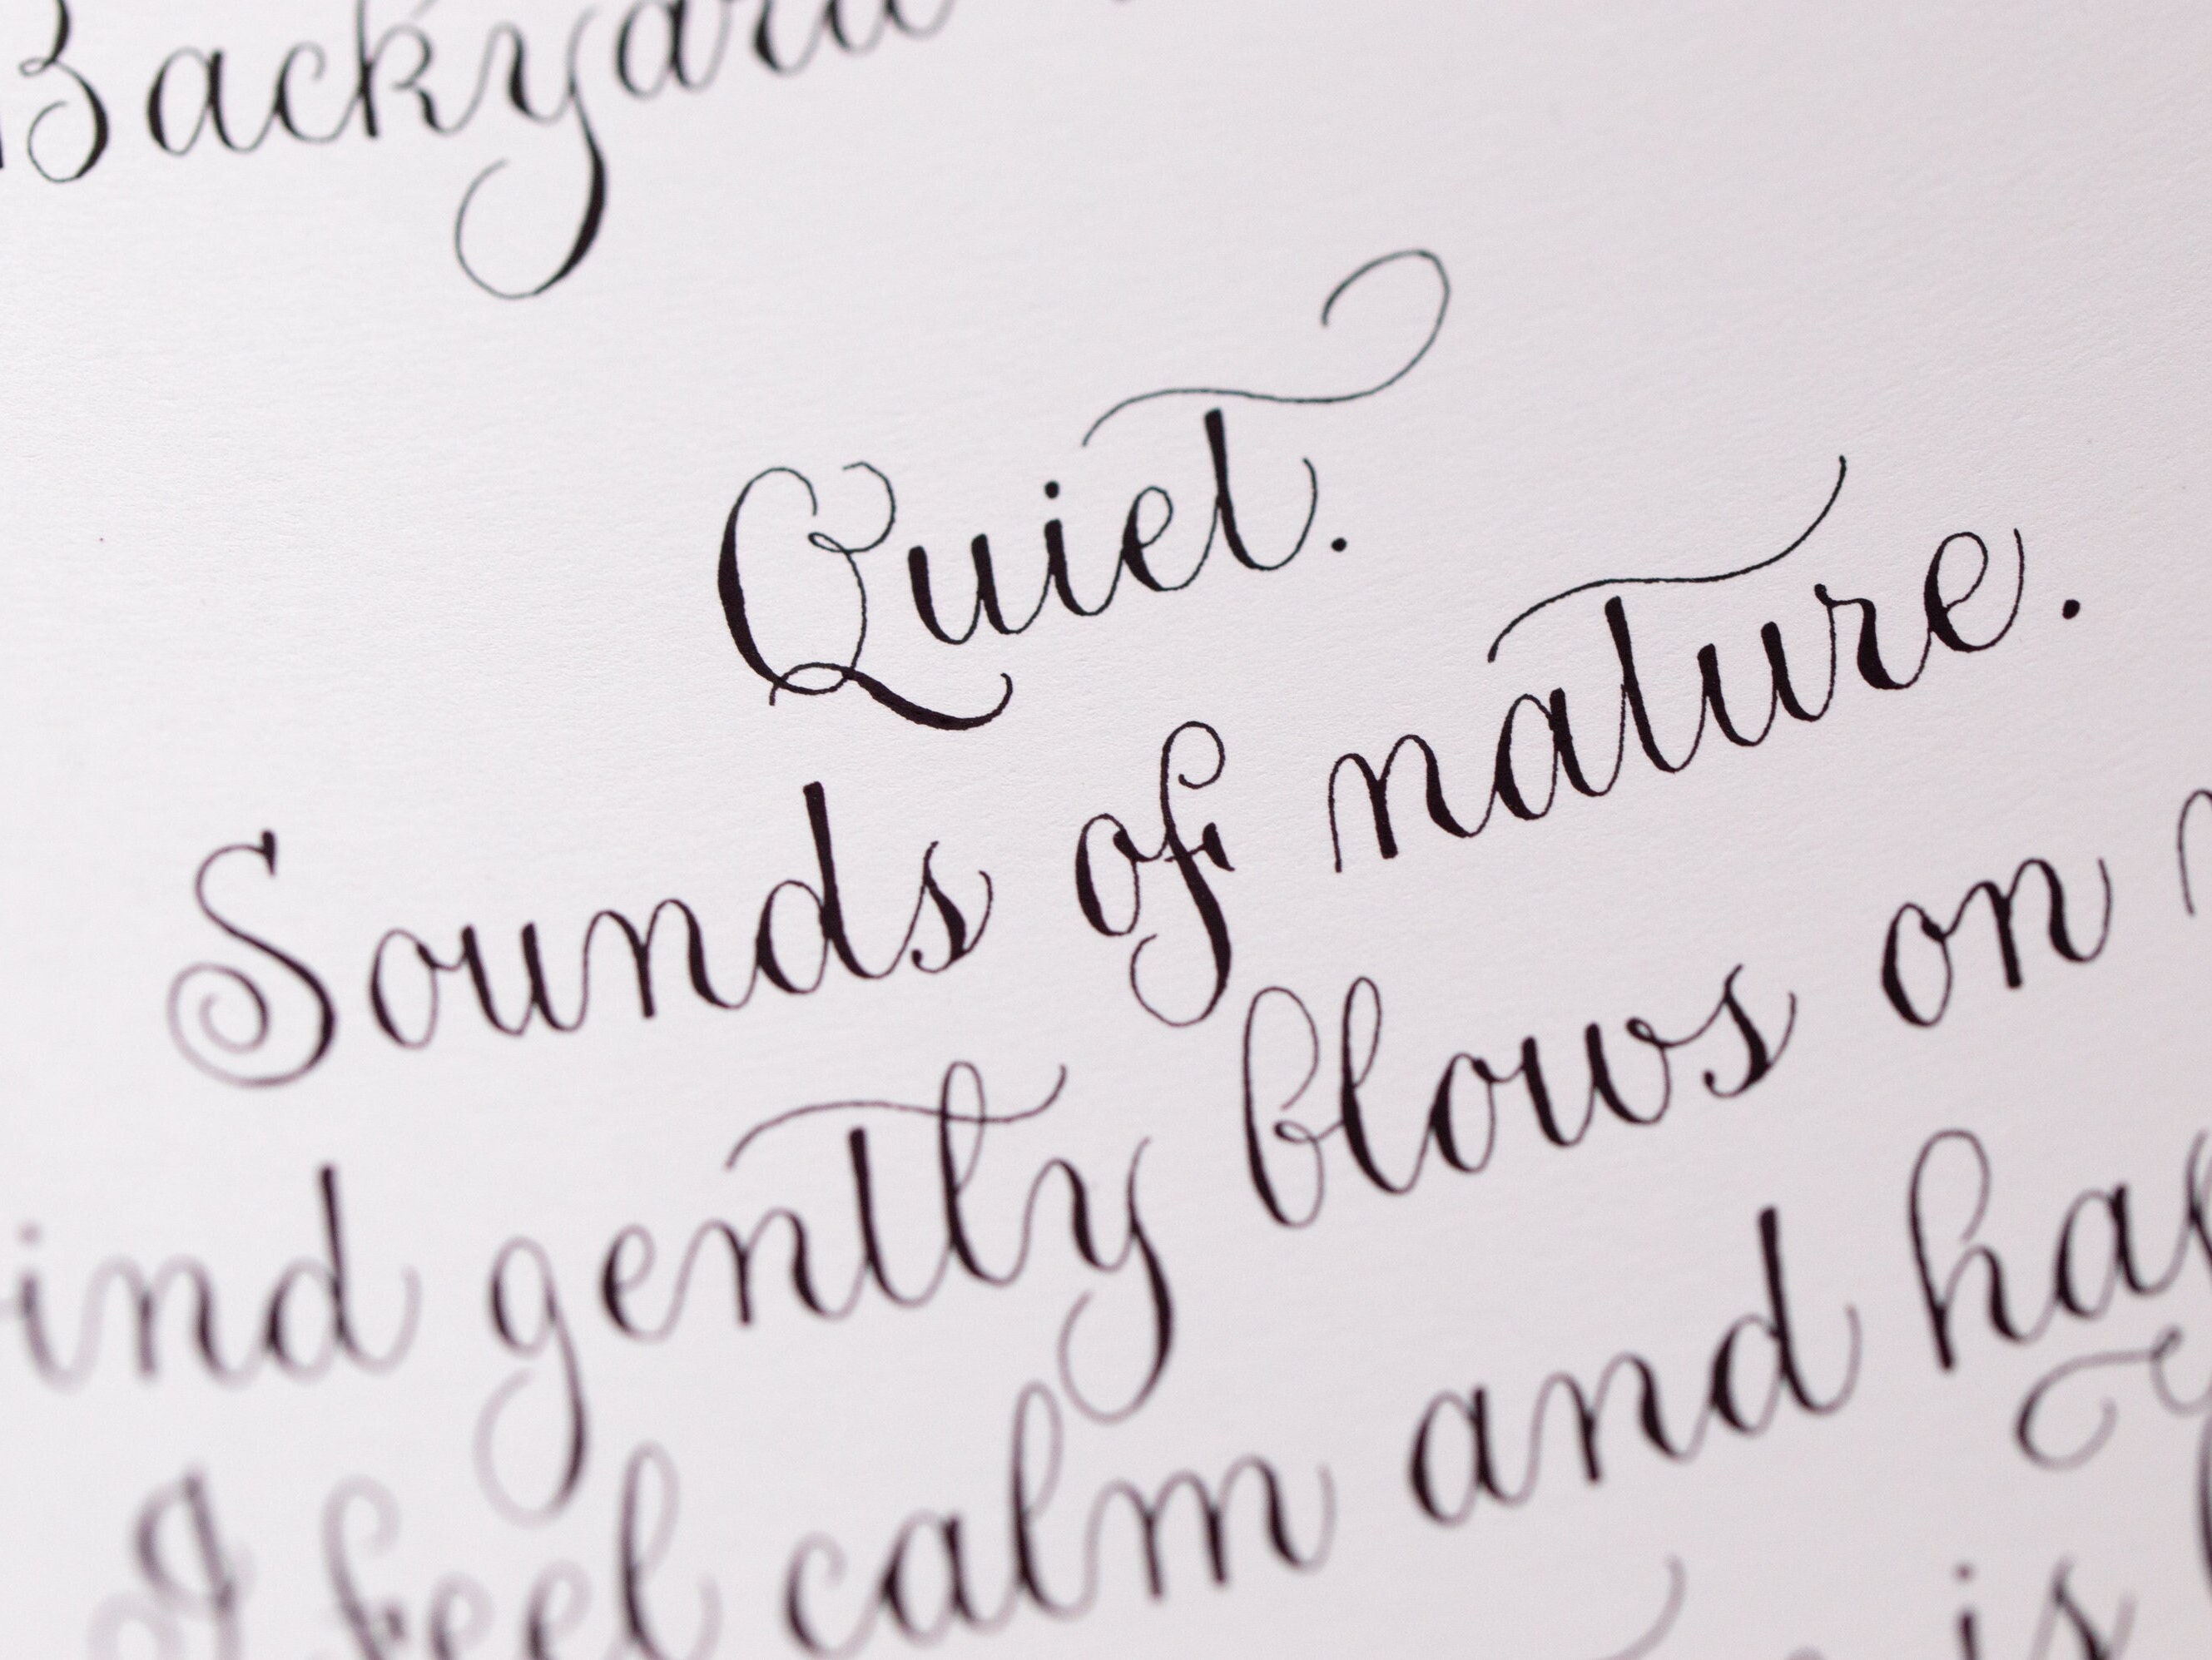 Backyard
Quiet.
Sounds of nature.
gently blows on
I feel calm and
is